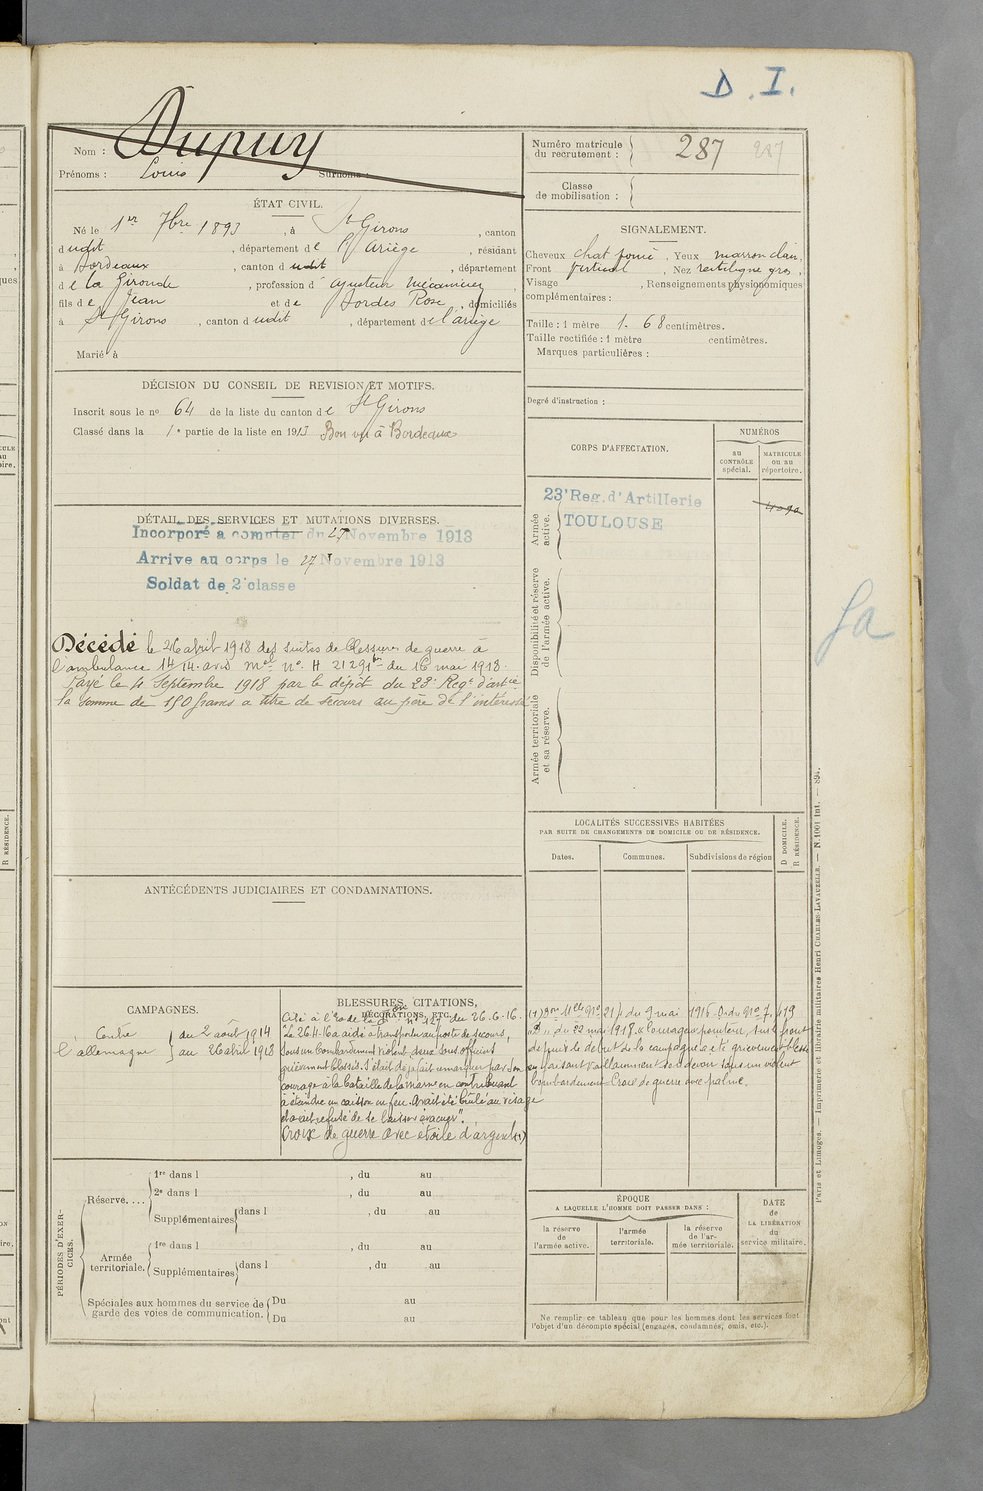 D. I.
Nom : Dupuy
Prénoms : Louis Surnoms :
Numéro matricule du recrutement : 287 287
Classe de mobilisation :
ÉTAT CIVIL.
Né le 1er 7bre 1893, à St Girons, canton
dudit, département de l'Ariège, résidant
à Bordeaux, canton dudit, département
de la Gironde, profession d'ajusteur mécanicien,
fils de Jean et de Dordes Rose, domiciliés
à St Girons, canton dudit, département de l'ariège
Marié à
SIGNALEMENT.
Cheveux chat foncé, Yeux marron clair,
Front vertical, Nez rectiligne gros,
Visage , Renseignements physionomiques
complémentaires :
Taille : 1 mètre 1. 68 centimètres.
Taille rectifiée : 1 mètre centimètres.
Marques particulières :
Degré d'instruction :
DÉCISION DU CONSEIL DE REVISION ET MOTIFS.
Inscrit sous le no 64 de la liste du canton de St Girons
Classé dans la 1e partie de la liste en 1913 Bon vu à Bordeaux
CORPS D'AFFECTATION.
NUMÉROS
au CONTRÔLE spécial.
MATRICULE ou au répertoire.
Armée active.
23e Reg. d'Artillerie
TOULOUSE
Disponibilité et réserve de l'armée active.
Armée territoriale et sa réserve.
DÉTAIL DES SERVICES ET MUTATIONS DIVERSES.
Incorporé à compter du 27 Novembre 1913
Arrivé au corps le 27 Novembre 1913
Soldat de 2e classe
Décédé le 26 abril 1918 des suites de blessures de guerre à
l'ambulance 14/14. avis mel no. H 21291 du 16 mai 1918.
Payé le 4 Septembre 1918 par le dépôt du 23e Regt d'artie
la somme de 150 francs a titre de secours au père de l'intéressé
LOCALITÉS SUCCESSIVES HABITÉES
PAR SUITE DE CHANGEMENTS DE DOMICILE OU DE RÉSIDENCE.
Dates. Communes. Subdivisions de région
D DOMICILE. R RÉSIDENCE.
ANTÉCÉDENTS JUDICIAIRES ET CONDAMNATIONS.
CAMPAGNES.
Contre l'allemagne
du 2 août 1914
au 26 abril 1918
BLESSURES, CITATIONS,
DÉCORATIONS, ETC.
Cité à l'o. de la Don no 127 du 26-6-16.
"Le 26-4-16 a aidé à transporter au poste de secours,
sous un bombardement violent deux sous officiers
grièvement blessés. S'était déjà fait remarquer par son
courage à la bataille de la marne en contribuant
à éteindre un caisson en feu. Avait été brûlé au visage
et avait refusé de se laisser évacuer".
Croix de guerre avec étoile d'argent (1)
du 22 mai 1918. "Courageux pointeur, sur le front
depuis le début de la campagne a été grièvement blessé
en faisant vaillamment son devoir sous un violent
bombardement. Croix de guerre avec palme.
PÉRIODES D'EXERCICES.
Réserve....
1re dans l , du au
2e dans l , du au
Supplémentaires dans l , du au
Armée territoriale.
1re dans l , du au
Supplémentaires dans l , du au
Spéciales aux hommes du service de garde des voies de communication.
Du au
Du au
ÉPOQUE
A LAQUELLE L'HOMME DOIT PASSER DANS :
la réserve de l'armée active.
l'armée territoriale.
la réserve de l'armée territoriale.
DATE de LA LIBÉRATION du service militaire.
Ne remplir ce tableau que pour les hommes dont les services font
l'objet d'un décompte spécial (engagés, condamnés, omis, etc.).
Paris et Limoges. — Imprimerie et librairie militaires Henri CHARLES-LAVAUZELLE. — N. 1001 Int. — 894.